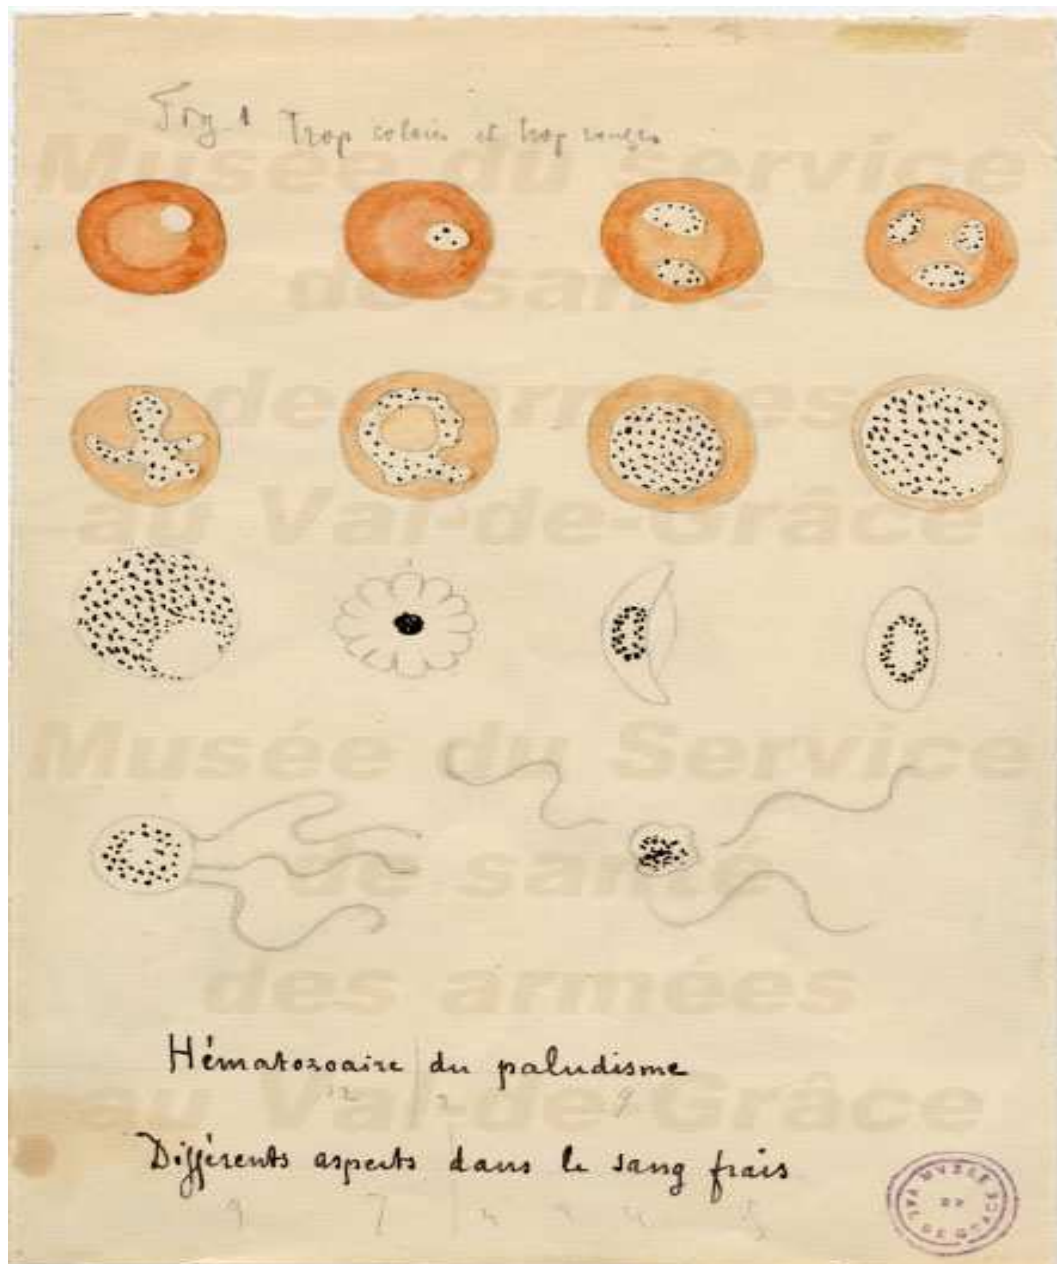 Fig. 1 Trop colorés et trop rouges
Musée du service
de santé
des armées
au Val-de-Grâce
Musée du Service
de santé
des armées
au Val-de-Grâce
Hématozoaire du paludisme
12 2 9
Différents aspects dans le sang frais
9 7
MVSEE DV VAL DE GRACE